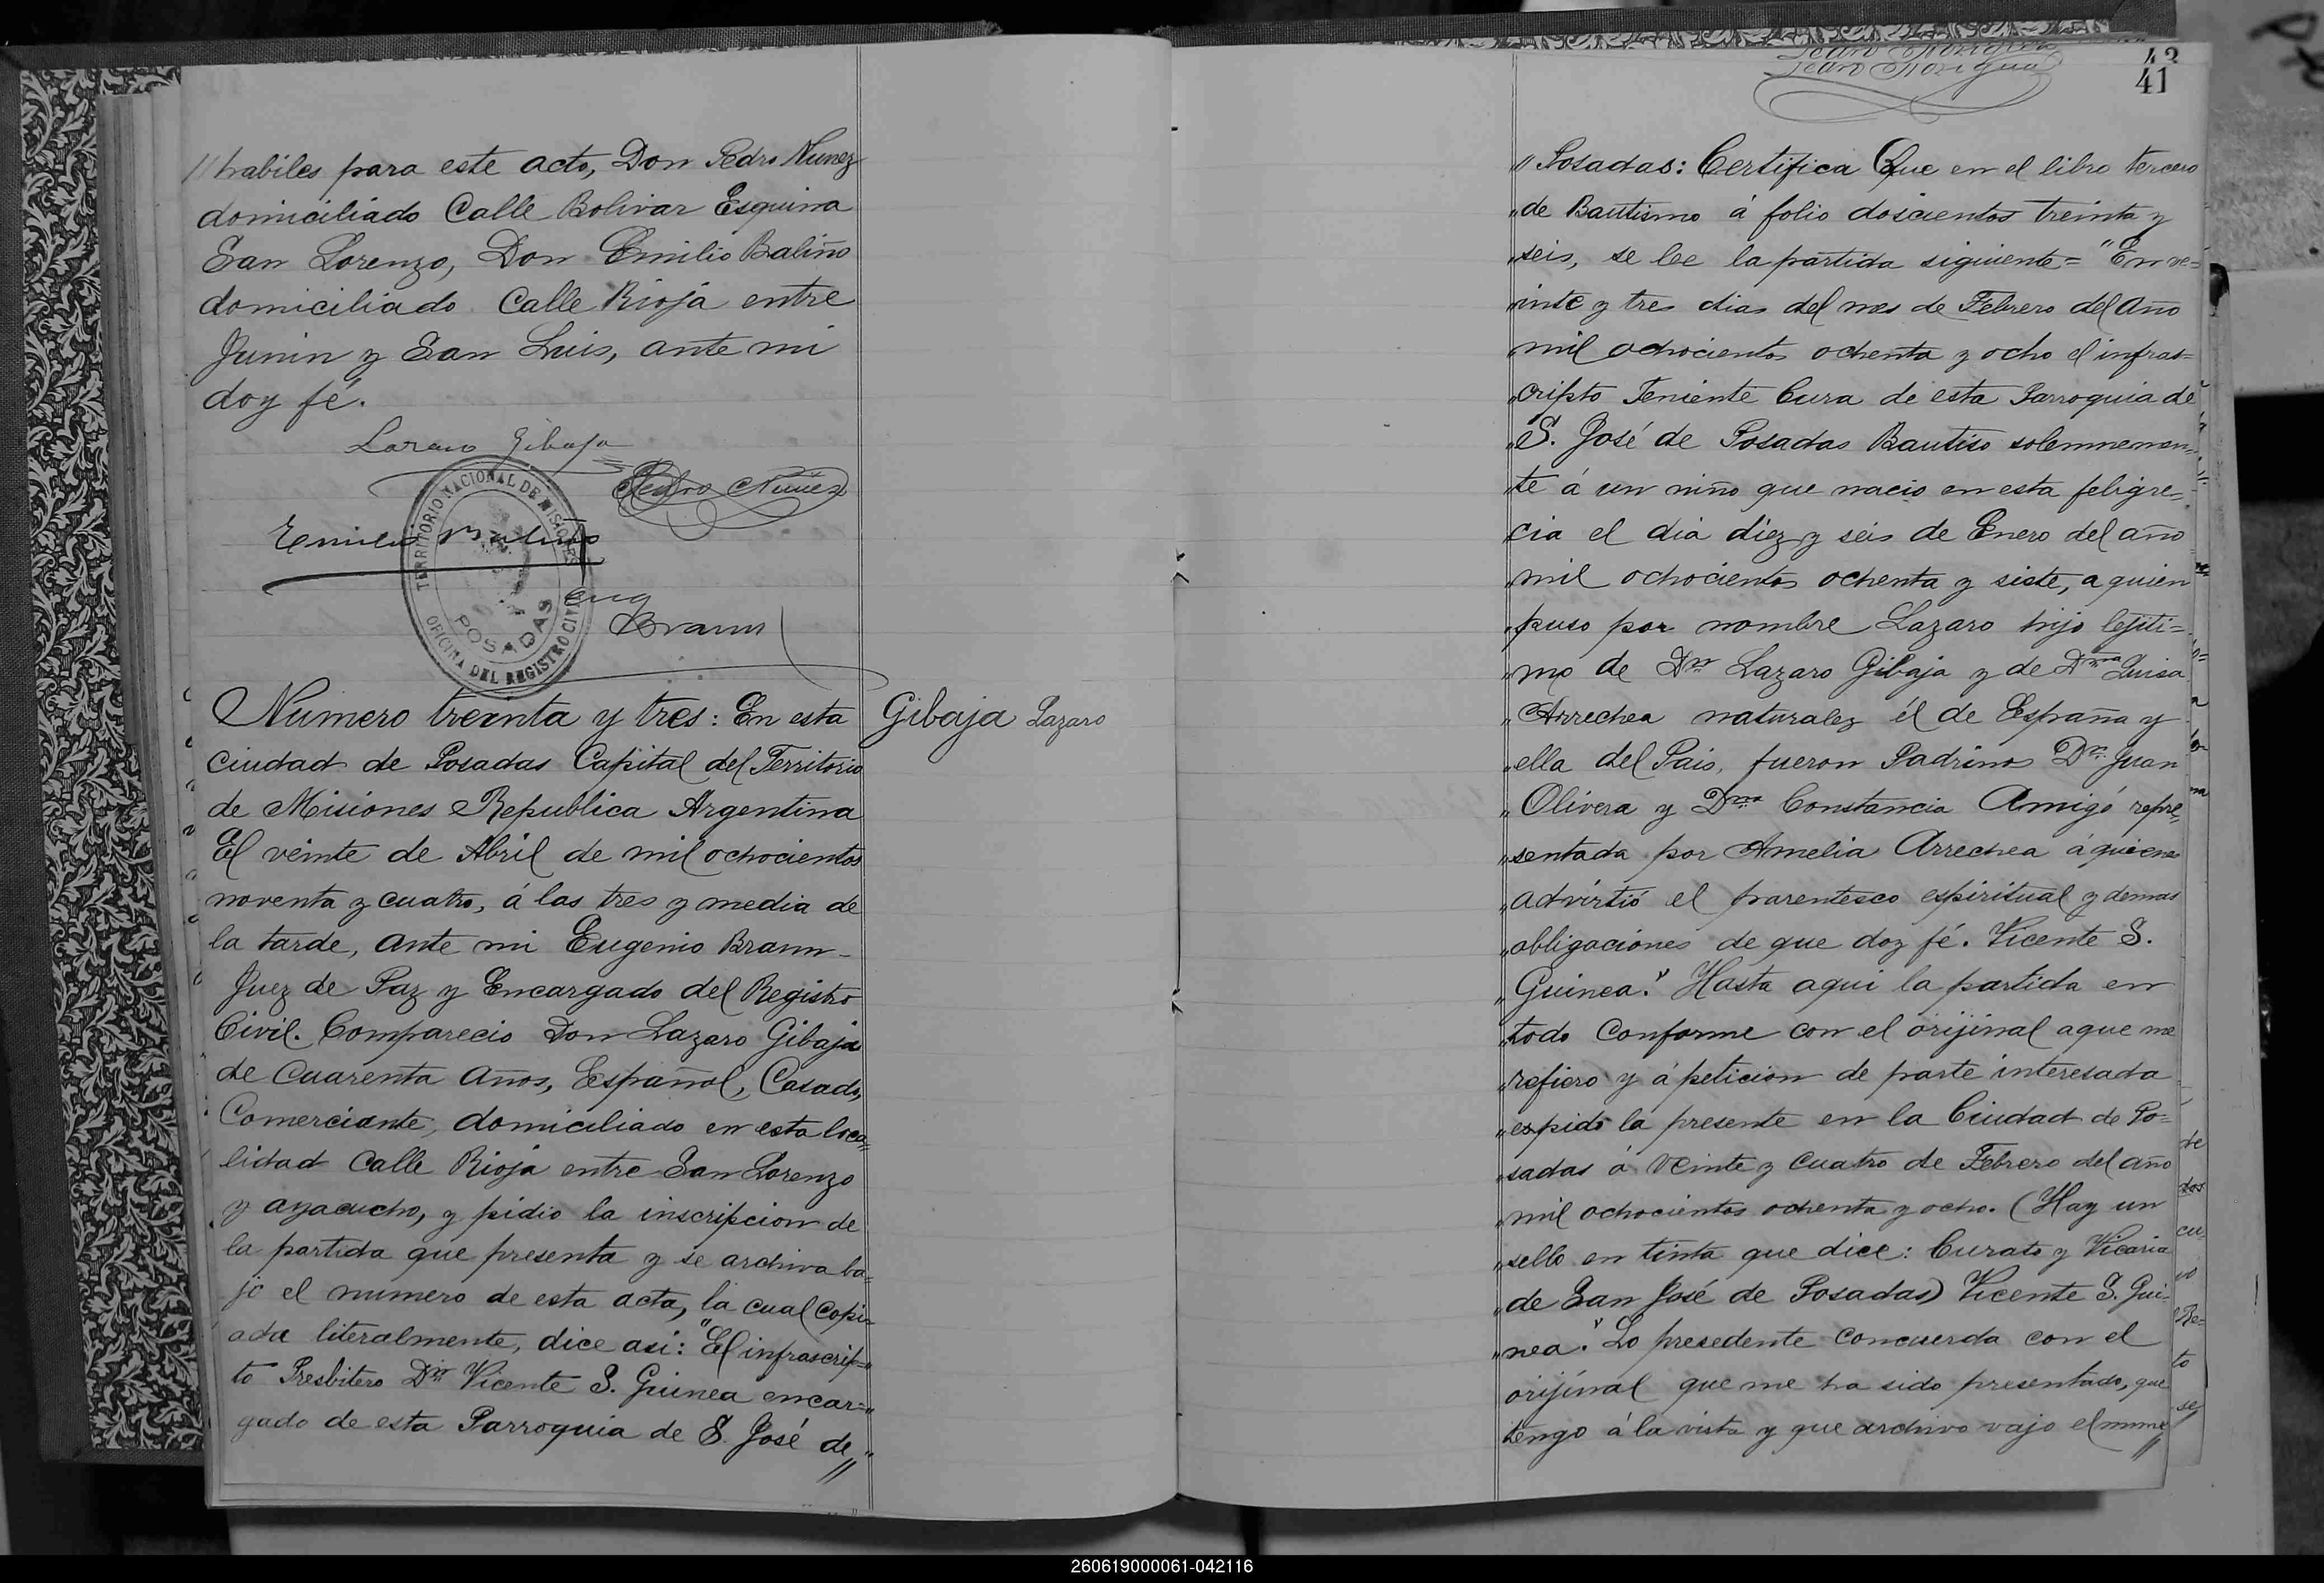 // habiles para este acto, Don Pedro Nunez
domiciliado Calle Bolivar Esquina
San Lorenzo, Don Emilio Baliño
domiciliado Calle Rioja entre
Junin y San Luis, ante mi
doy fé.
Lazaro Gibaja
Pedro Nuñez
Emilio Baliño
TERRITORIO NACIONAL DE MISIONES
POSADAS
OFICINA DEL REGISTRO CIVIL
Eug
Brann
Numero treinta y tres: En esta
Gibaja Lazaro
ciudad de Posadas Capital del Territorio
de Misiones Republica Argentina
El veinte de Abril de mil ochocientos
noventa y cuatro, á las tres y media de
la tarde, ante mi Eugenio Brann-
Juez de Paz y Encargado del Registro
Civil. Comparecio Don Lazaro Gibaja
de Cuarenta años, Español, Casado,
Comerciante, domiciliado en esta loca=
lidad Calle Rioja entre San Lorenzo
y ayacucho, y pidio la inscripcion de
la partida que presenta y se archiva ba=
jo el numero de esta acta, la cual copi=
ada literalmente, dice asi: "El infrascrip="
to Presbitero Dn Vicente S. Guinea encar="
gado de esta Parroquia de S. José de "
//
43
41
// Posadas: Certifica Que en el libro tercero
"de Bautismo á folio doscientos treinta y
"seis, se lee la partida siguiente= "En ve=
"inte y tres dias del mes de Febrero del año
"mil ochocientos ochenta y ocho el infras=
"cripto Teniente Cura de esta Parroquia de
"S. José de Posadas Bautiso solemnemen=
"te á un niño que nacio en esta feligre=
"cia el dia diez y seis de Enero del año
"mil ochocientos ochenta y siete, a quien
"puso por nombre Lazaro hijo lejiti=
"mo de Dn Lazaro Gibaja y de Dna Luisa
"Arrechea naturales él de España y
"ella del Pais, fueron Padrinos Dn Juan
"Olivera y Dna Constancia Amigó repre=
"sentada por Amelia Arrechea á quienes
"advirtió el parentesco espiritual y demas
"obligaciónes de que doy fé. Vicente S.
"Guinea." Hasta aqui la partida en
"todo Conforme con el orijinal a que me
"refiero y á peticion de parte interesada
"espido la presente en la Ciudad de Po=
"sadas á veinte y cuatro de Febrero del año
"mil ochocientos ochenta y ocho. (Hay un
"sello en tinta que dice: Curato y Vicaria
"de San José de Posadas) Vicente S. Gui=
"nea." Lo presedente concuerda con el
orijinal que me ha sido presentado, que
tengo á la vista y que archivo vajo el nume
//
260619000061-042116